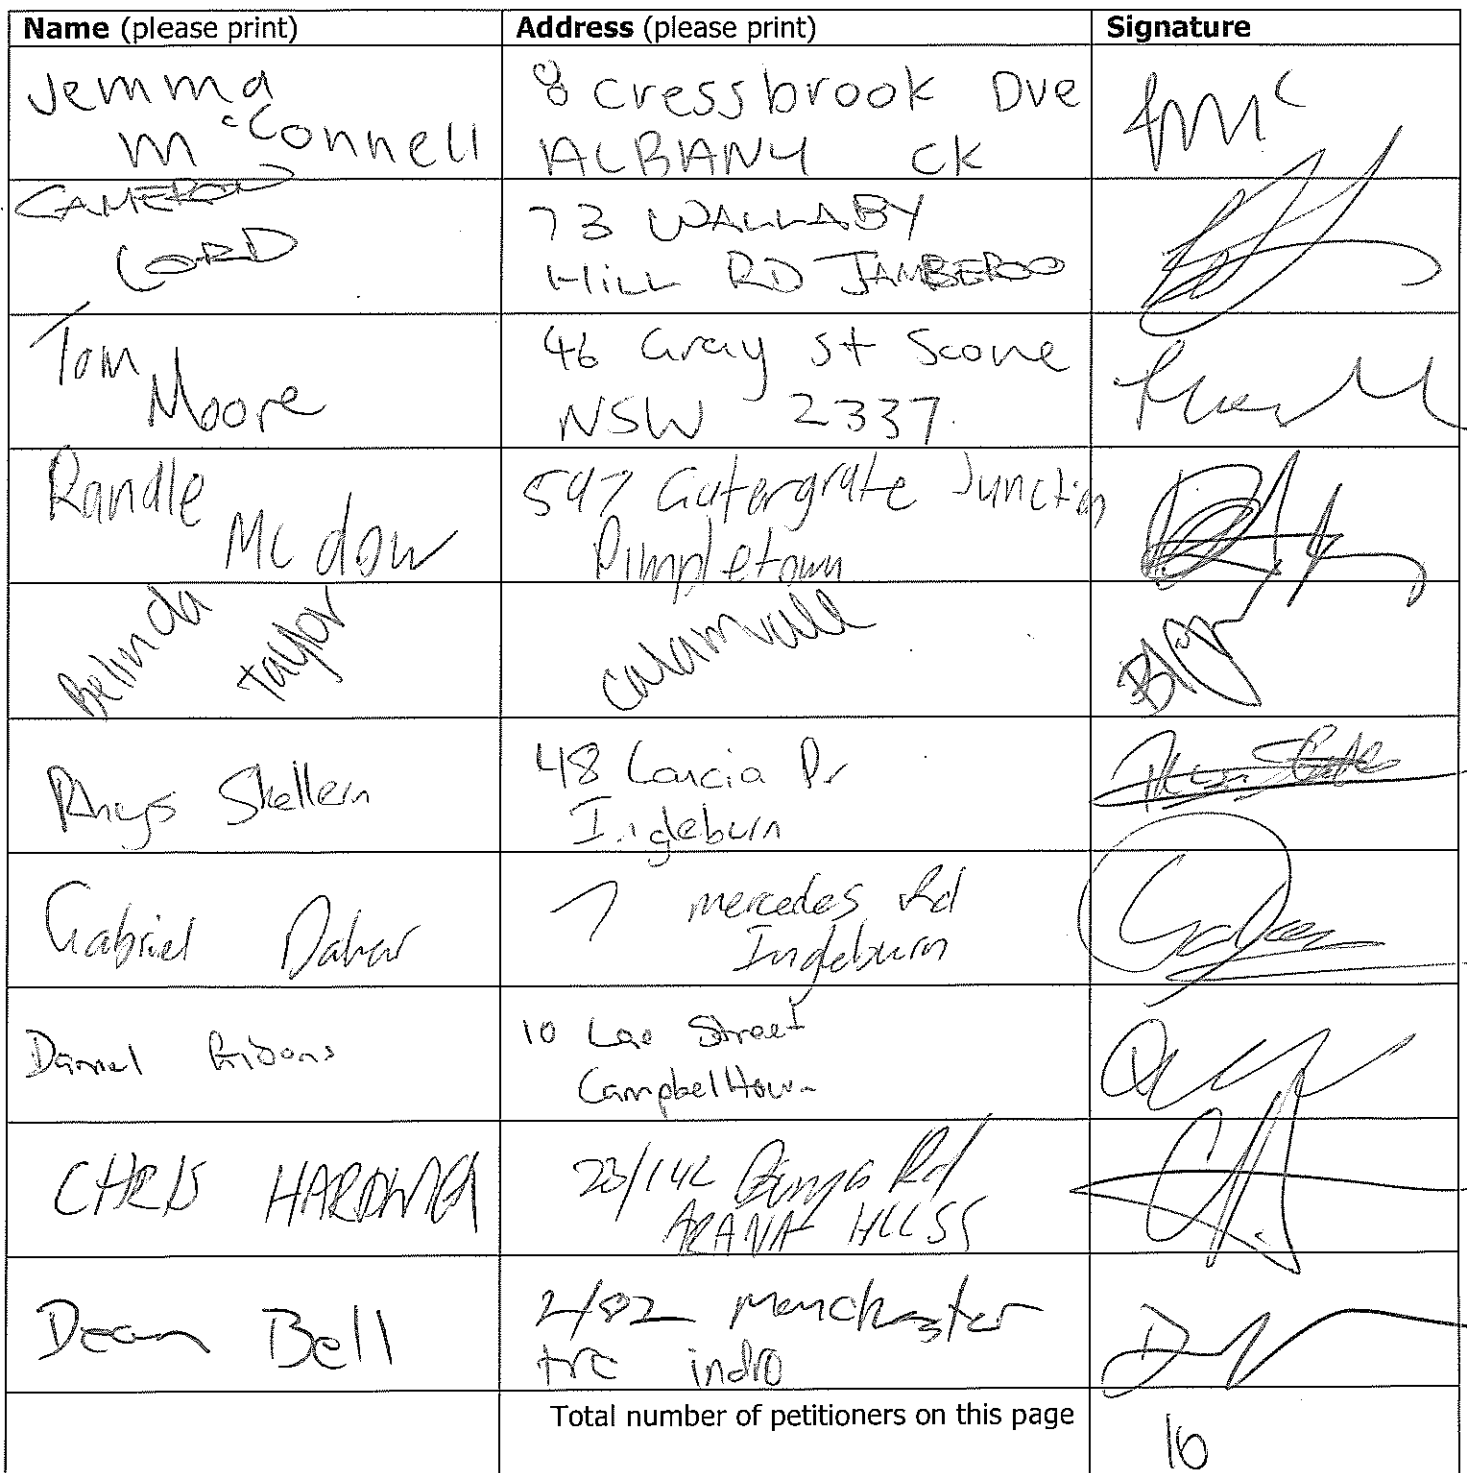 Name (please print) Address (please print) Signature
Jemma
McConnell
8 Cressbrook Dve
ALBANY CK
CAMERON
LORD
73 WALLABY
HILL RD JAMBEROO
Tom
Moore
46 Gray St Scone
NSW 2337
Randle
Mcdow
597 Junction
Pimpletown
Belinda
Taylor
Calamvale
Rhys Skellern
48 Lancia Dr
Ingleburn
Gabriel Dahar
7 mercedes Rd
Ingleburn
Daniel
10 Street
Campbelltown
CHRIS HARDING
Rd
ARANA HILLS
Dean Bell
2/82 Manchester
trc indro
Total number of petitioners on this page
10